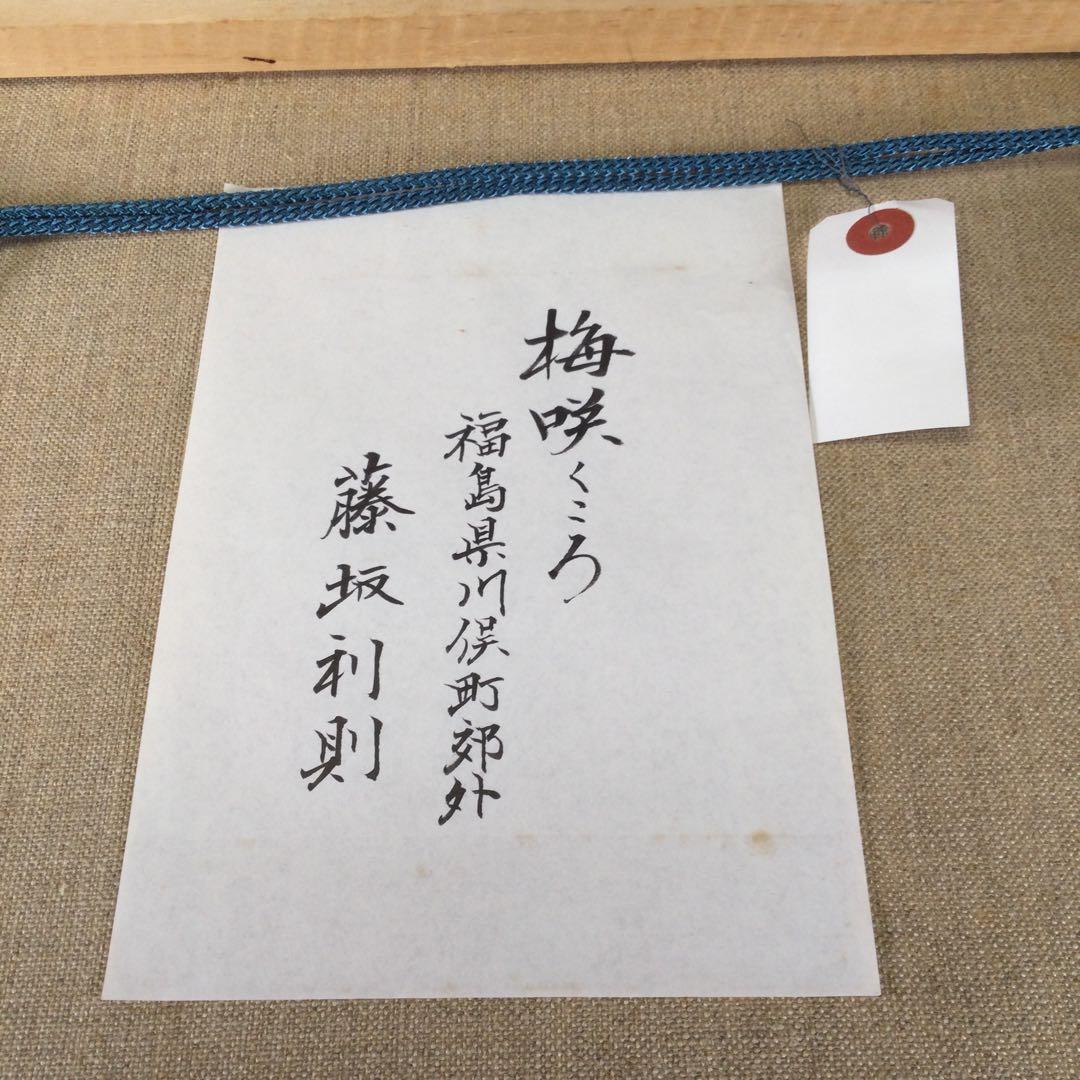 梅咲くころ
福島県川俣町郊外
藤坂利則